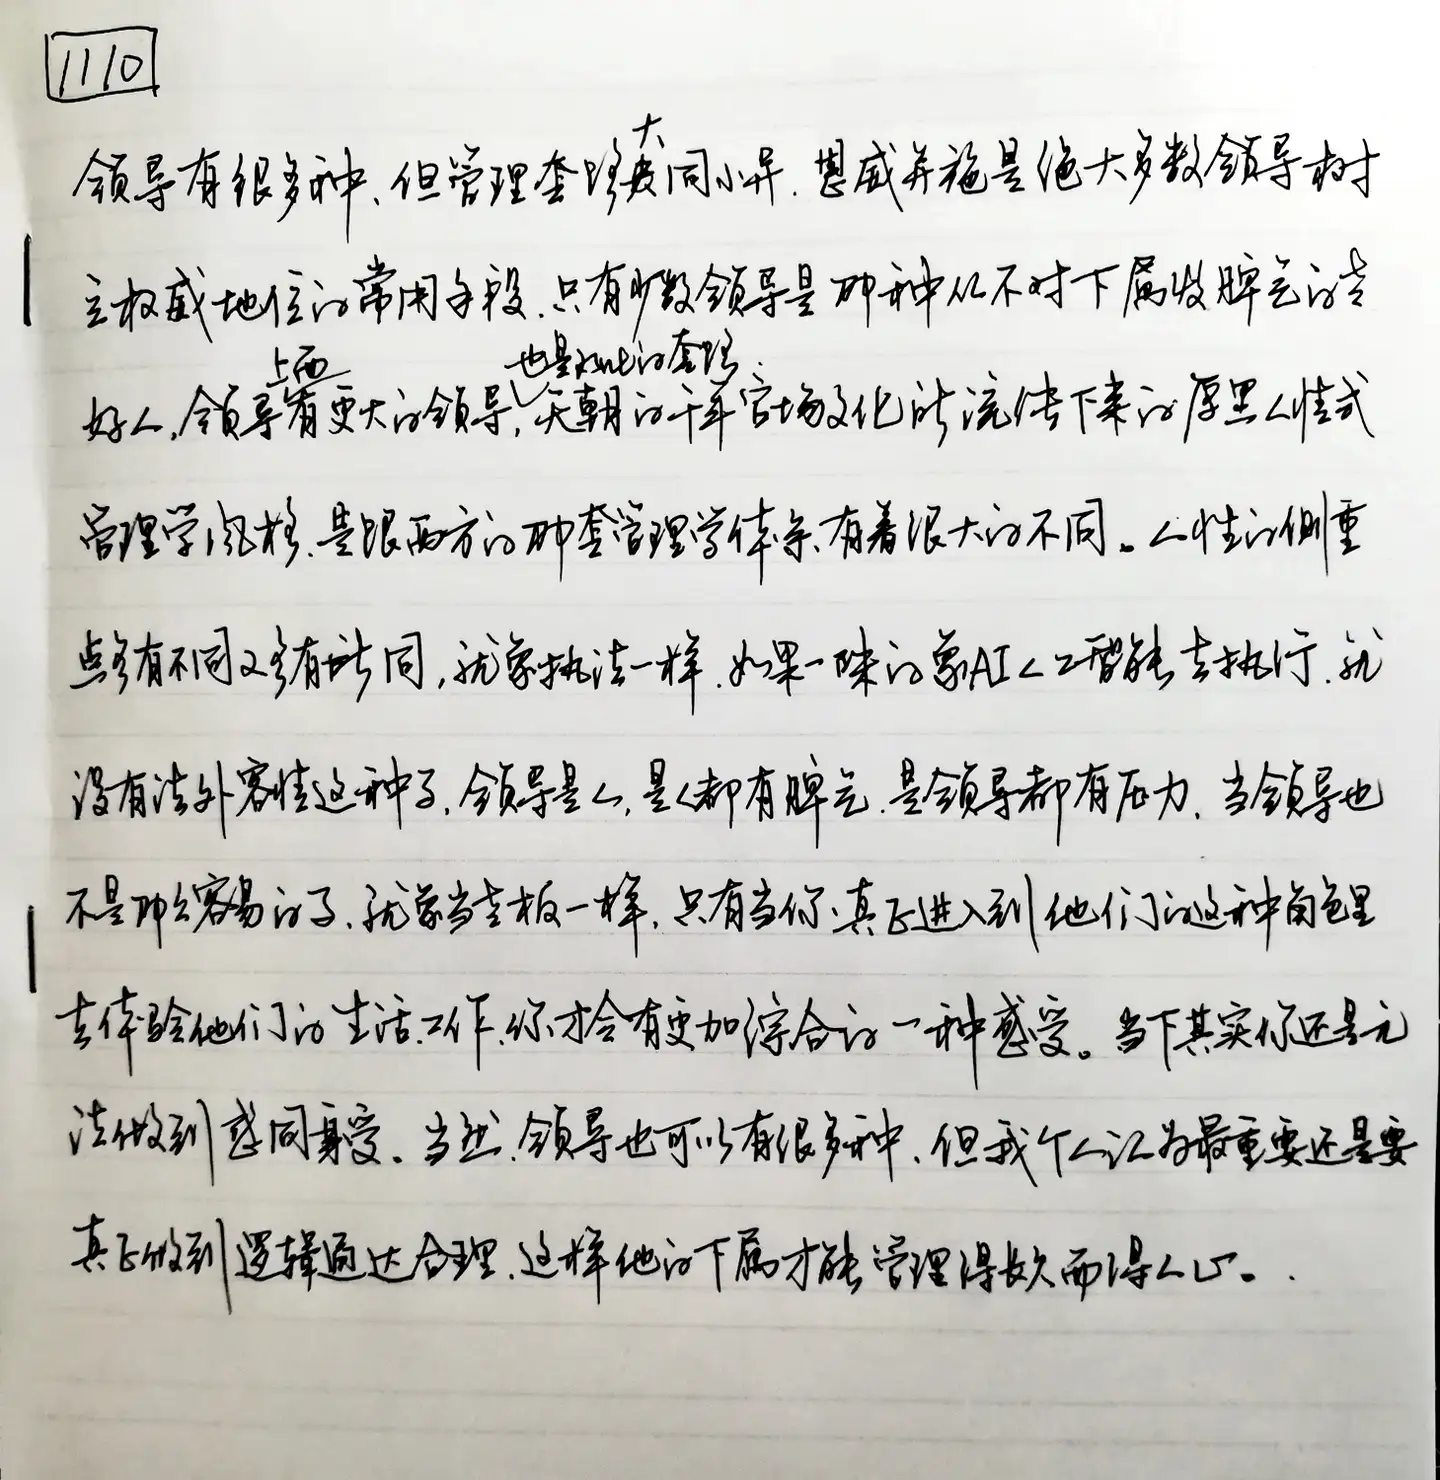 1110
领导有很多种、但管理套路大同小异、恩威并施是绝大多数领导树
立权威地位的常用手段、只有少数领导是那种从不对下属发脾气的老
好人，领导上面有更大的领导，也是如此的套路．天朝的千年官场文化所流传下来的厚黑人性式
管理学风格、是跟西方的那套管理学体系、有着很大的不同。人性的侧重
点各有不同又各有所同，就象执法一样、如果一味的象AI人工智能去执行、就
没有法外容情这种了、领导是人，是人都有脾气、是领导都有压力、当领导也
不是那么容易的了、就象当老板一样，只有当你真正进入到他们的这种角色里
去体验他们的生活、工作、你才会有更加综合的一种感受。当下其实你还是无
法做到感同身受。当然、领导也可以有很多种、但我个人认为最重要还是要
真正做到逻辑通达合理、这样他的下属才能管理得长久而得人心。